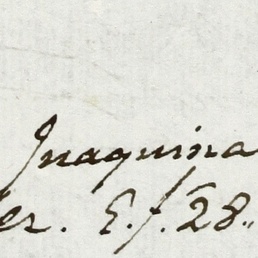 Juaquina
er. E. f. 28.